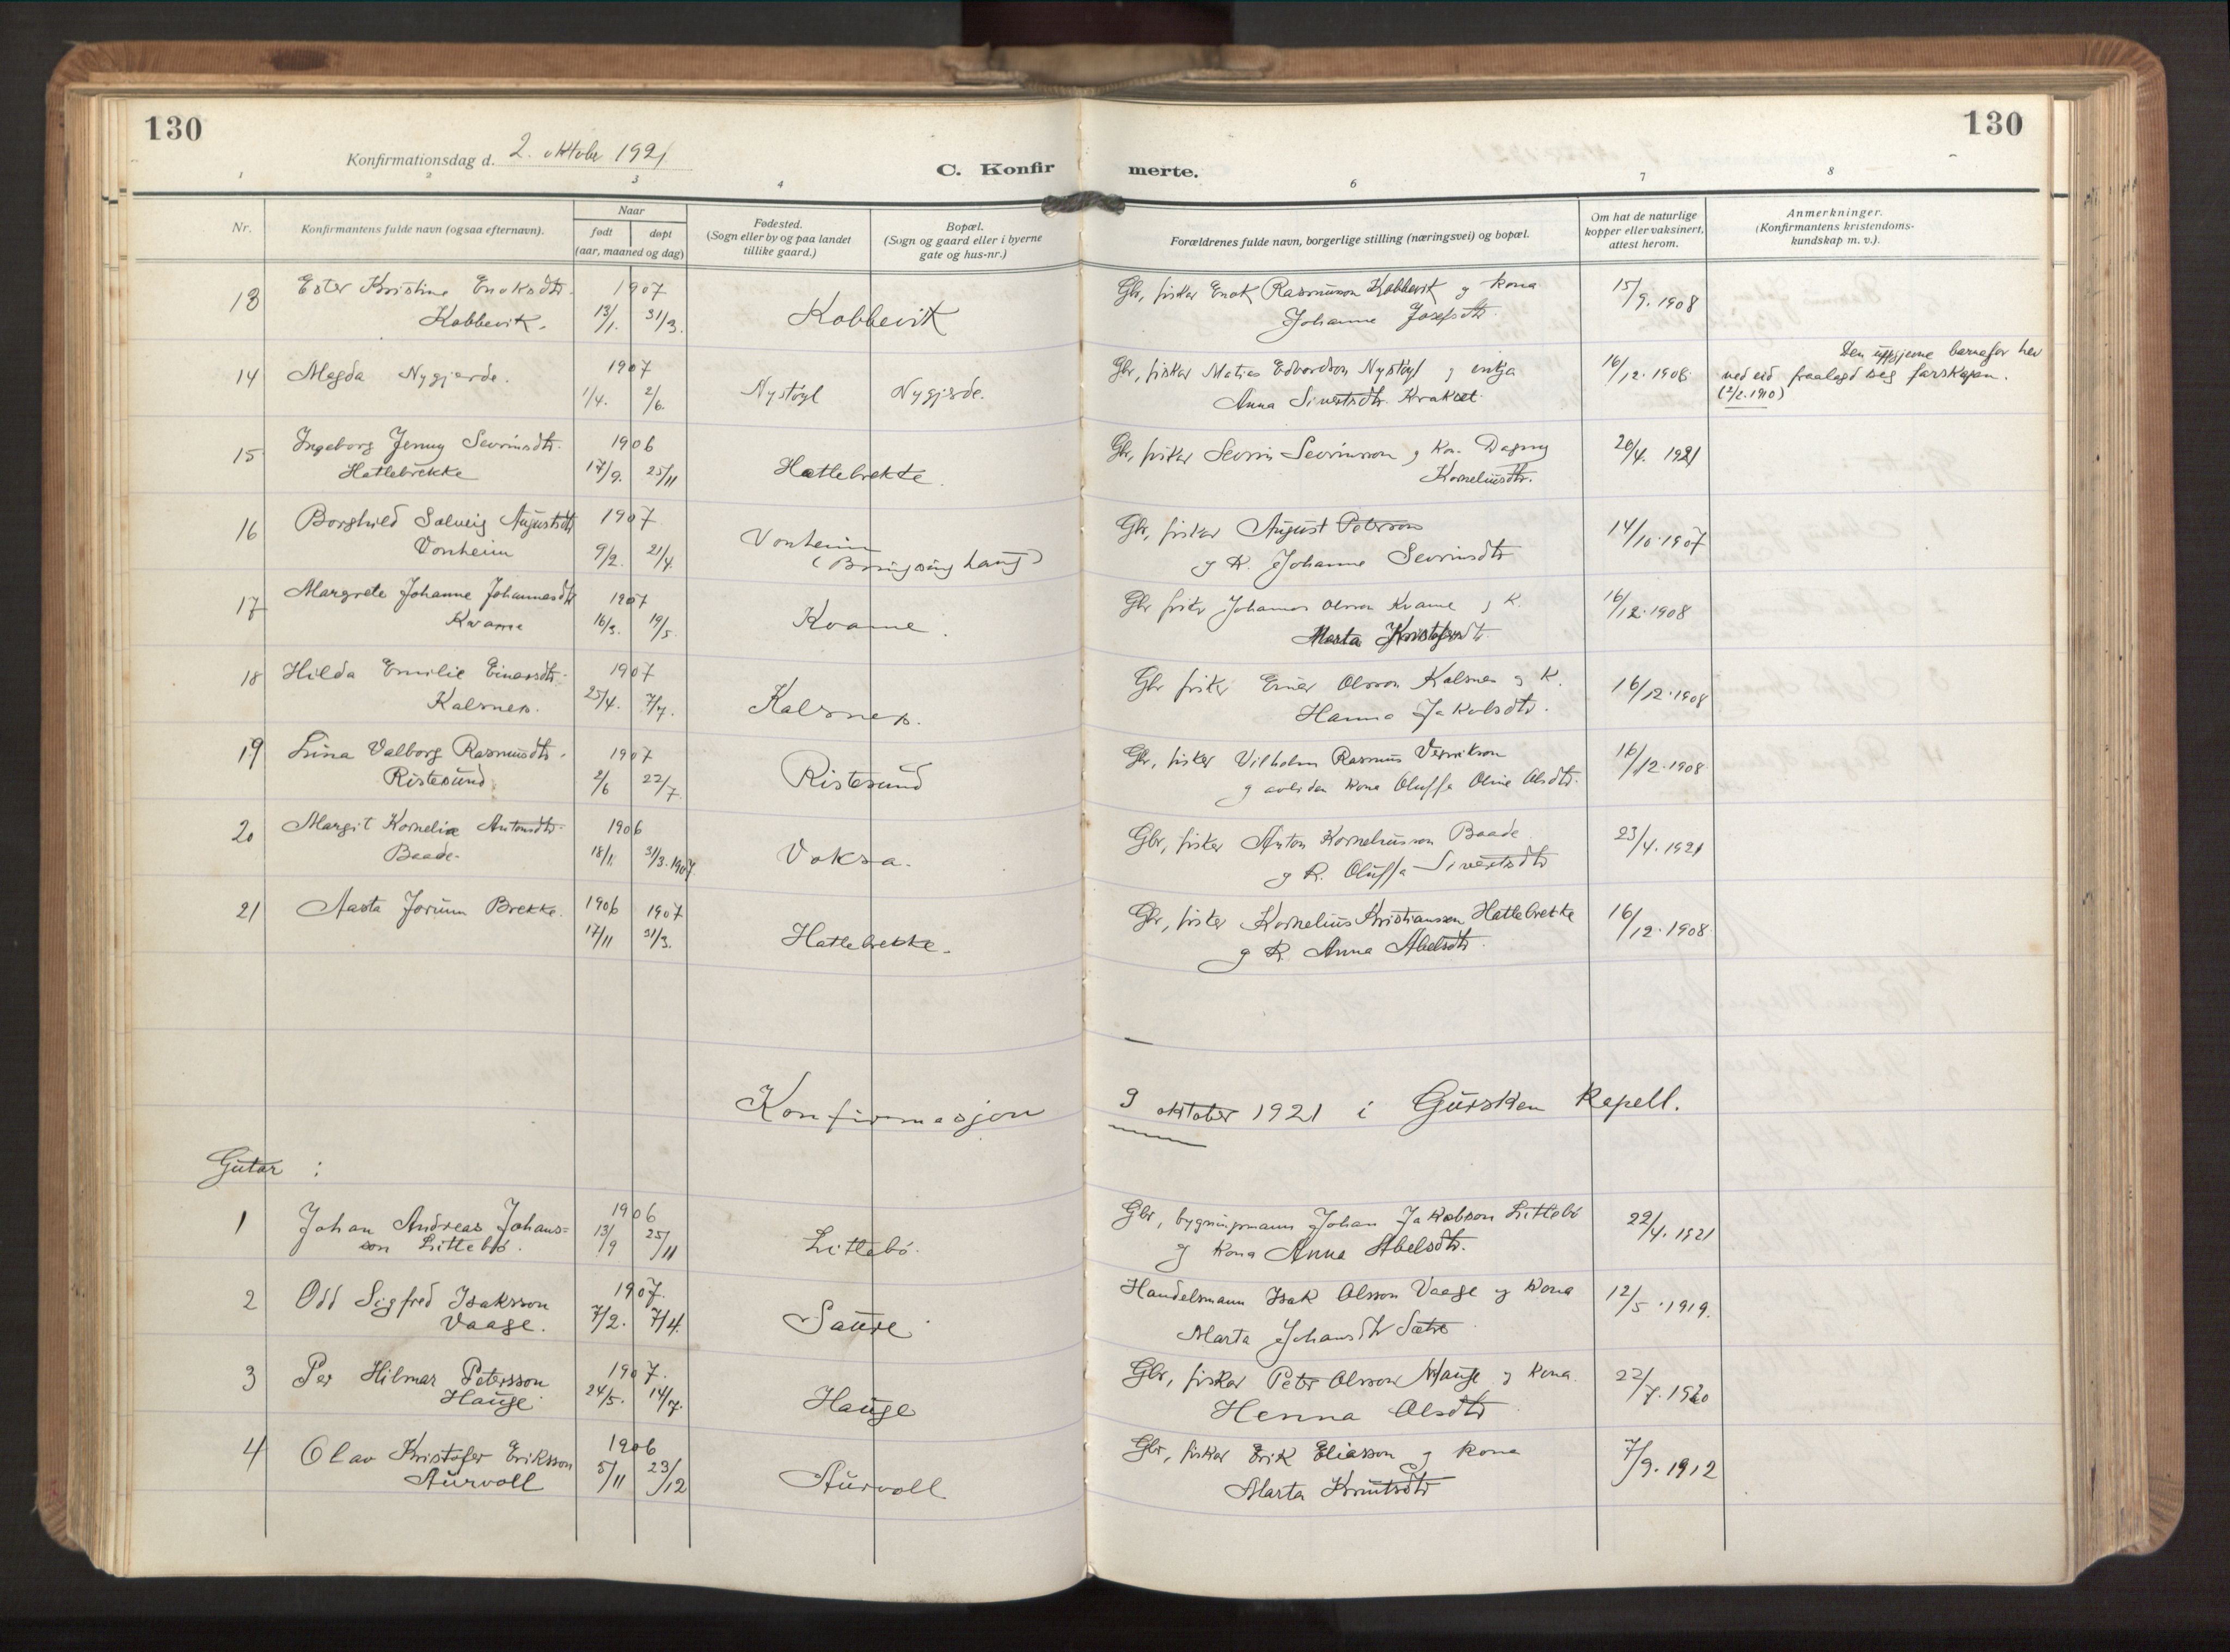 130
130
Konfirmationsdag d. 2. oktober 1921
C. Konfir merte.
1 2 3 4 6 7 8
Nr.
Konfirmantens fulde navn (ogsaa efternavn).
Naar
født
døpt
(aar, maaned og dag)
Fødested.
(Sogn eller by og paa landet
tillike gaard.)
Bopæl.
(Sogn og gaard eller i byerne
gate og hus-nr.)
Forældrenes fulde navn, borgerlige stilling (næringsvei) og bopæl.
Om hat de naturlige
kopper eller vaksinert,
attest herom.
Anmerkninger.
(Konfirmantens kristendoms-
kundskap m. v.).
13 Ester Kristine Enoksdtr. 1907 Gbr, fisker Enok Rasmusson Kobbevik og kona 15/9. 1908
Kobbevik. 13/1. 31/3. Kobbevik Johanne Josefsdtr.
14 Magda Nygjerde. 1907 Gbr, fisker Matias Edvardson Nystøyl og enkja 16/12. 1908. Den uppgjevne barnefar hev
1/4. 2/6. Nystøyl Nygjerde. Anna Sivertsdtr. Krakset ved eid fraalagd seg farskapen.
(2/2. 1910)
15 Ingeborg Jenny Sevrinsdtr. 1906 Gbr, fisker Sevrin Sevrinsson og kona Dagny 20/4. 1921
Hatlebrekke 17/9. 25/11 Hatlebrekke. Korneliusdtr.
16 Borghild Solveig Augustsdtr 1907 Gbr, fisker August Peterson 14/10. 1907
Vonheim 9/2. 21/4. Vonheim og K. Johanne Sevrinsdtr
17 Margrete Johanne Johannesdtr 1907 Gbr fisker Johannes Olsson Kvame og K. 16/12. 1908
Kvame 16/3. 19/5. Kvame. Marta Kristofersdtr.
18 Hilda Emilie Einarsdtr. 1907 Gbr fisker Einar Olsson Kalsnes og K. 16/12. 1908
Kalsnes. 25/4. 7/7. Kalsnes. Hanna Jakobsdtr.
19 Lina Valborg Rasmusdtr. 1907 Gbr, fisker Vilhelm Rasmus 16/12. 1908
Ristesund. 2/6 22/7. Ristesund og avliden kona Oluffa Oline Olsdtr.
20 Margit Kornelia Antonsdtr. 1906 Gbr, fisker Anton Korneliusson Baade 23/4. 1921
Baade. 18/1. 31/3. 1907. Voksa. og K. Oluffa Sivertsdtr
21 Aasta Jorunn Brekke. 1906 1907 Gbr, fisker Kornelius Kristiansen Hatlebrekke 16/12. 1908
17/11 31/3. Hatlebrekke. og K. Anna Abelsdtr.
Konfirmasjon 9 oktober 1921 i Gursken kapell.
Gutar :
1 Johan Andreas Johans= 1906 Gbr, bygningsmann Johan Jakobson Littlebø 22/4. 1921
son Littlebø. 13/9 25/11 Littlebø. og kona Anna Abelsdtr.
2 Odd Sigfred Isaksson 1907. Handelsmann Isak Olsson Vaage og kona 12/5. 1919.
Vaage. 7/2. 7/4. Saure Marta Johansdtr Sætre
3 Per Hilmar Petersson 1907. Gbr, fisker Peter Olsson Hauge og kona 22/7. 1920
Hauge 24/5. 14/7. Hauge Henna Olsdtr
4 Olav Kristofer Eriksson 1906 Gbr, fisker Erik Eliasson og kona 7/9. 1912
Aurvoll 5/11 23/12 Aurvoll Marta Knutsdtr